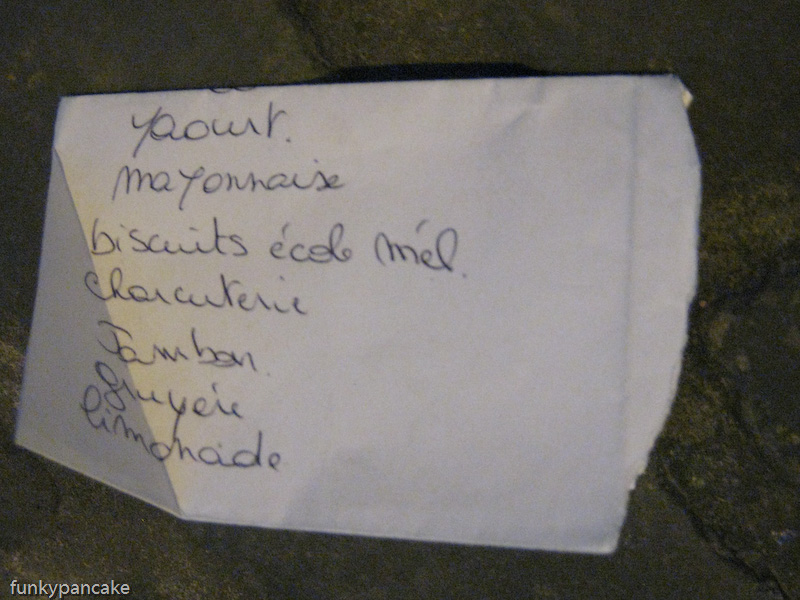 yaourt.
mayonnaise
biscuits école mél.
charcuterie
Jambon.
gruyère
limonade
funkypancake